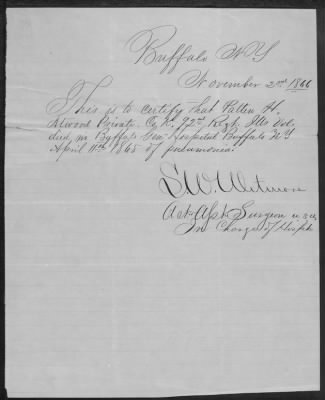 Buffalo N Y
November 2nd 1866
This is to certify that Patten H.
Atwood Private Co K. 72nd Regt Ills Vol.
died in Buffalo Gen. Hospital Buffalo N Y
April 11th 1865 of pneumonia.
S. W. Wetmore
Act Asst Surgeon U.S.A.
In Charge of Hospital